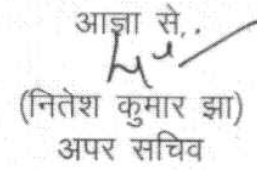 आज्ञा से,.
(नितेश कुमार झा)
अपर सचिव